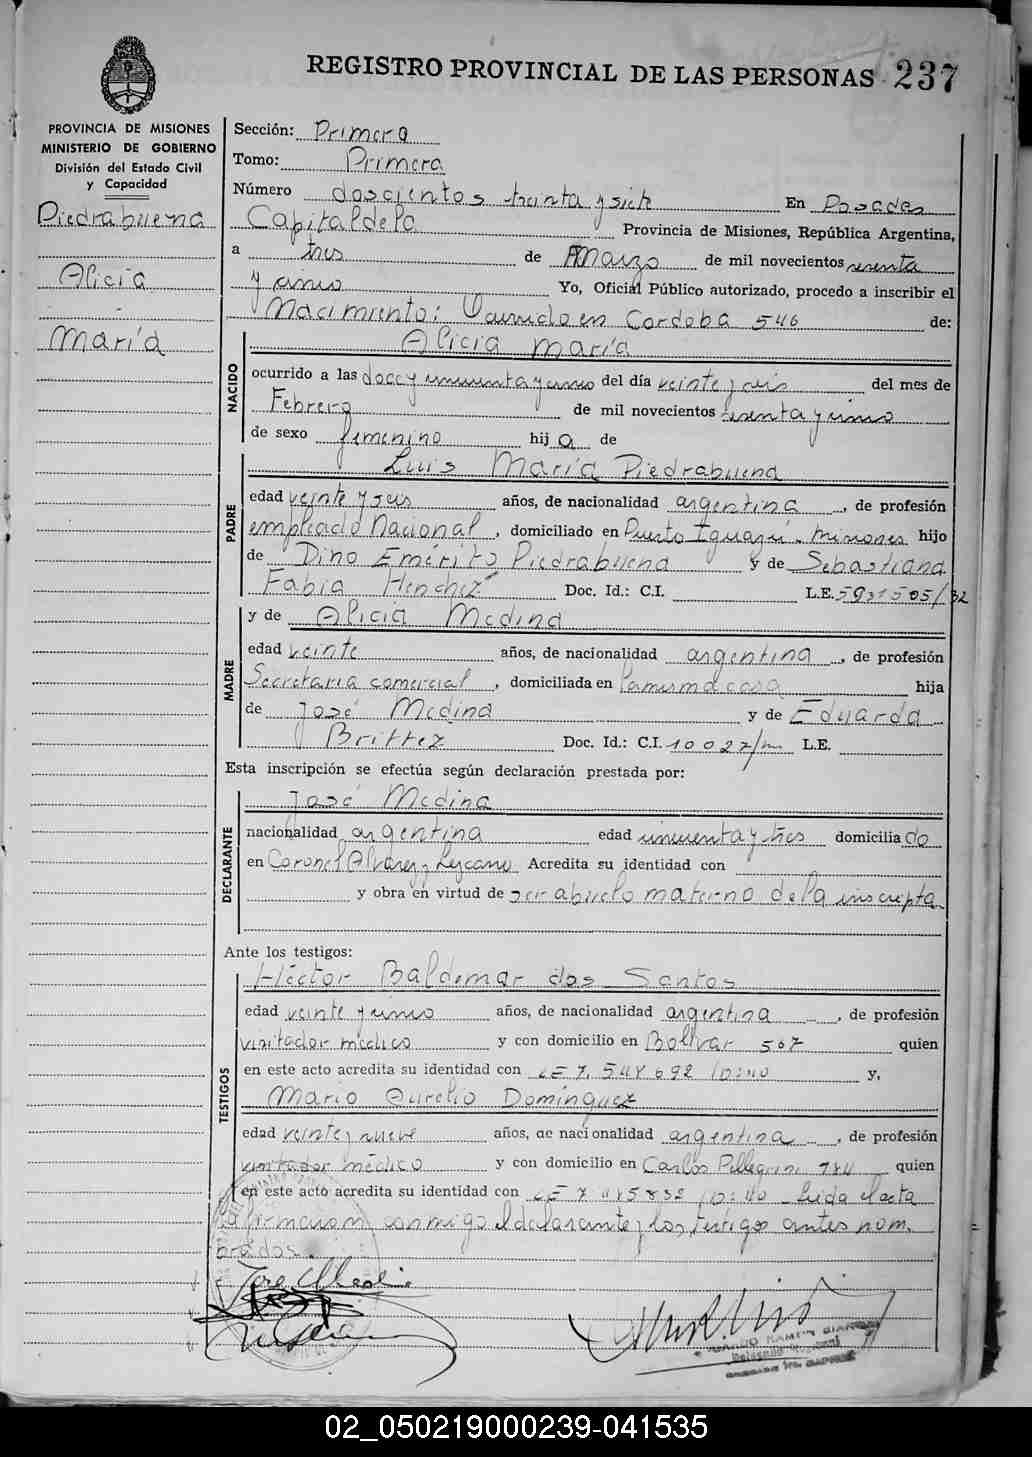 REGISTRO PROVINCIAL DE LAS PERSONAS 237
PROVINCIA DE MISIONES
MINISTERIO DE GOBIERNO
División del Estado Civil
y Capacidad
Piedrabuena
Alicia
María
Sección: Primera
Tomo: Primera
Número doscientos treinta y siete En Posadas
Capital de la Provincia de Misiones, República Argentina,
a tres de Marzo de mil novecientos sesenta
y cinco Yo, Oficial Público autorizado, procedo a inscribir el
Nacimiento: Ocurrido en Cordoba 546 de:
NACIDO
Alicia María
ocurrido a las doce y cincuenta y cinco del día veinte y seis del mes de
Febrero de mil novecientos sesenta y cinco
de sexo femenino hija de
PADRE
Luis María Piedrabuena
edad veinte y seis años, de nacionalidad argentina, de profesión
empleado Nacional, domiciliado en Puerto Iguazú - Misiones hijo
de Dino Emérito Piedrabuena y de Sebastiana
Fabia Henchez Doc. Id.: C.I. L.E.
y de Alicia Medina
MADRE
edad veinte años, de nacionalidad argentina, de profesión
Secretaria comercial, domiciliada en la misma casa hija
de José Medina y de Eduarda
Brittez Doc. Id.: C.I. 10027/m L.E.
Esta inscripción se efectúa según declaración prestada por:
DECLARANTE
José Medina
nacionalidad argentina edad cincuenta y tres domiciliado
en Coronel Alvarez y Lezcano Acredita su identidad con
y obra en virtud de ser abuelo materno de la inscripta
Ante los testigos:
TESTIGOS
Héctor Baldemar dos Santos
edad veinte y cinco años, de nacionalidad argentina, de profesión
visitador médico y con domicilio en Bolivar 567 quien
en este acto acredita su identidad con LE 7.548692 D:40 y,
Mario Aurelio Domínguez
edad veinte y nueve años, de nacionalidad argentina, de profesión
visitador médico y con domicilio en Carlos Pellegrini 784 quien
en este acto acredita su identidad con LE 7 D:40 Leida el acta
la firmaron conmigo el declarante y los testigos antes nom.
brados.
02_050219000239-041535